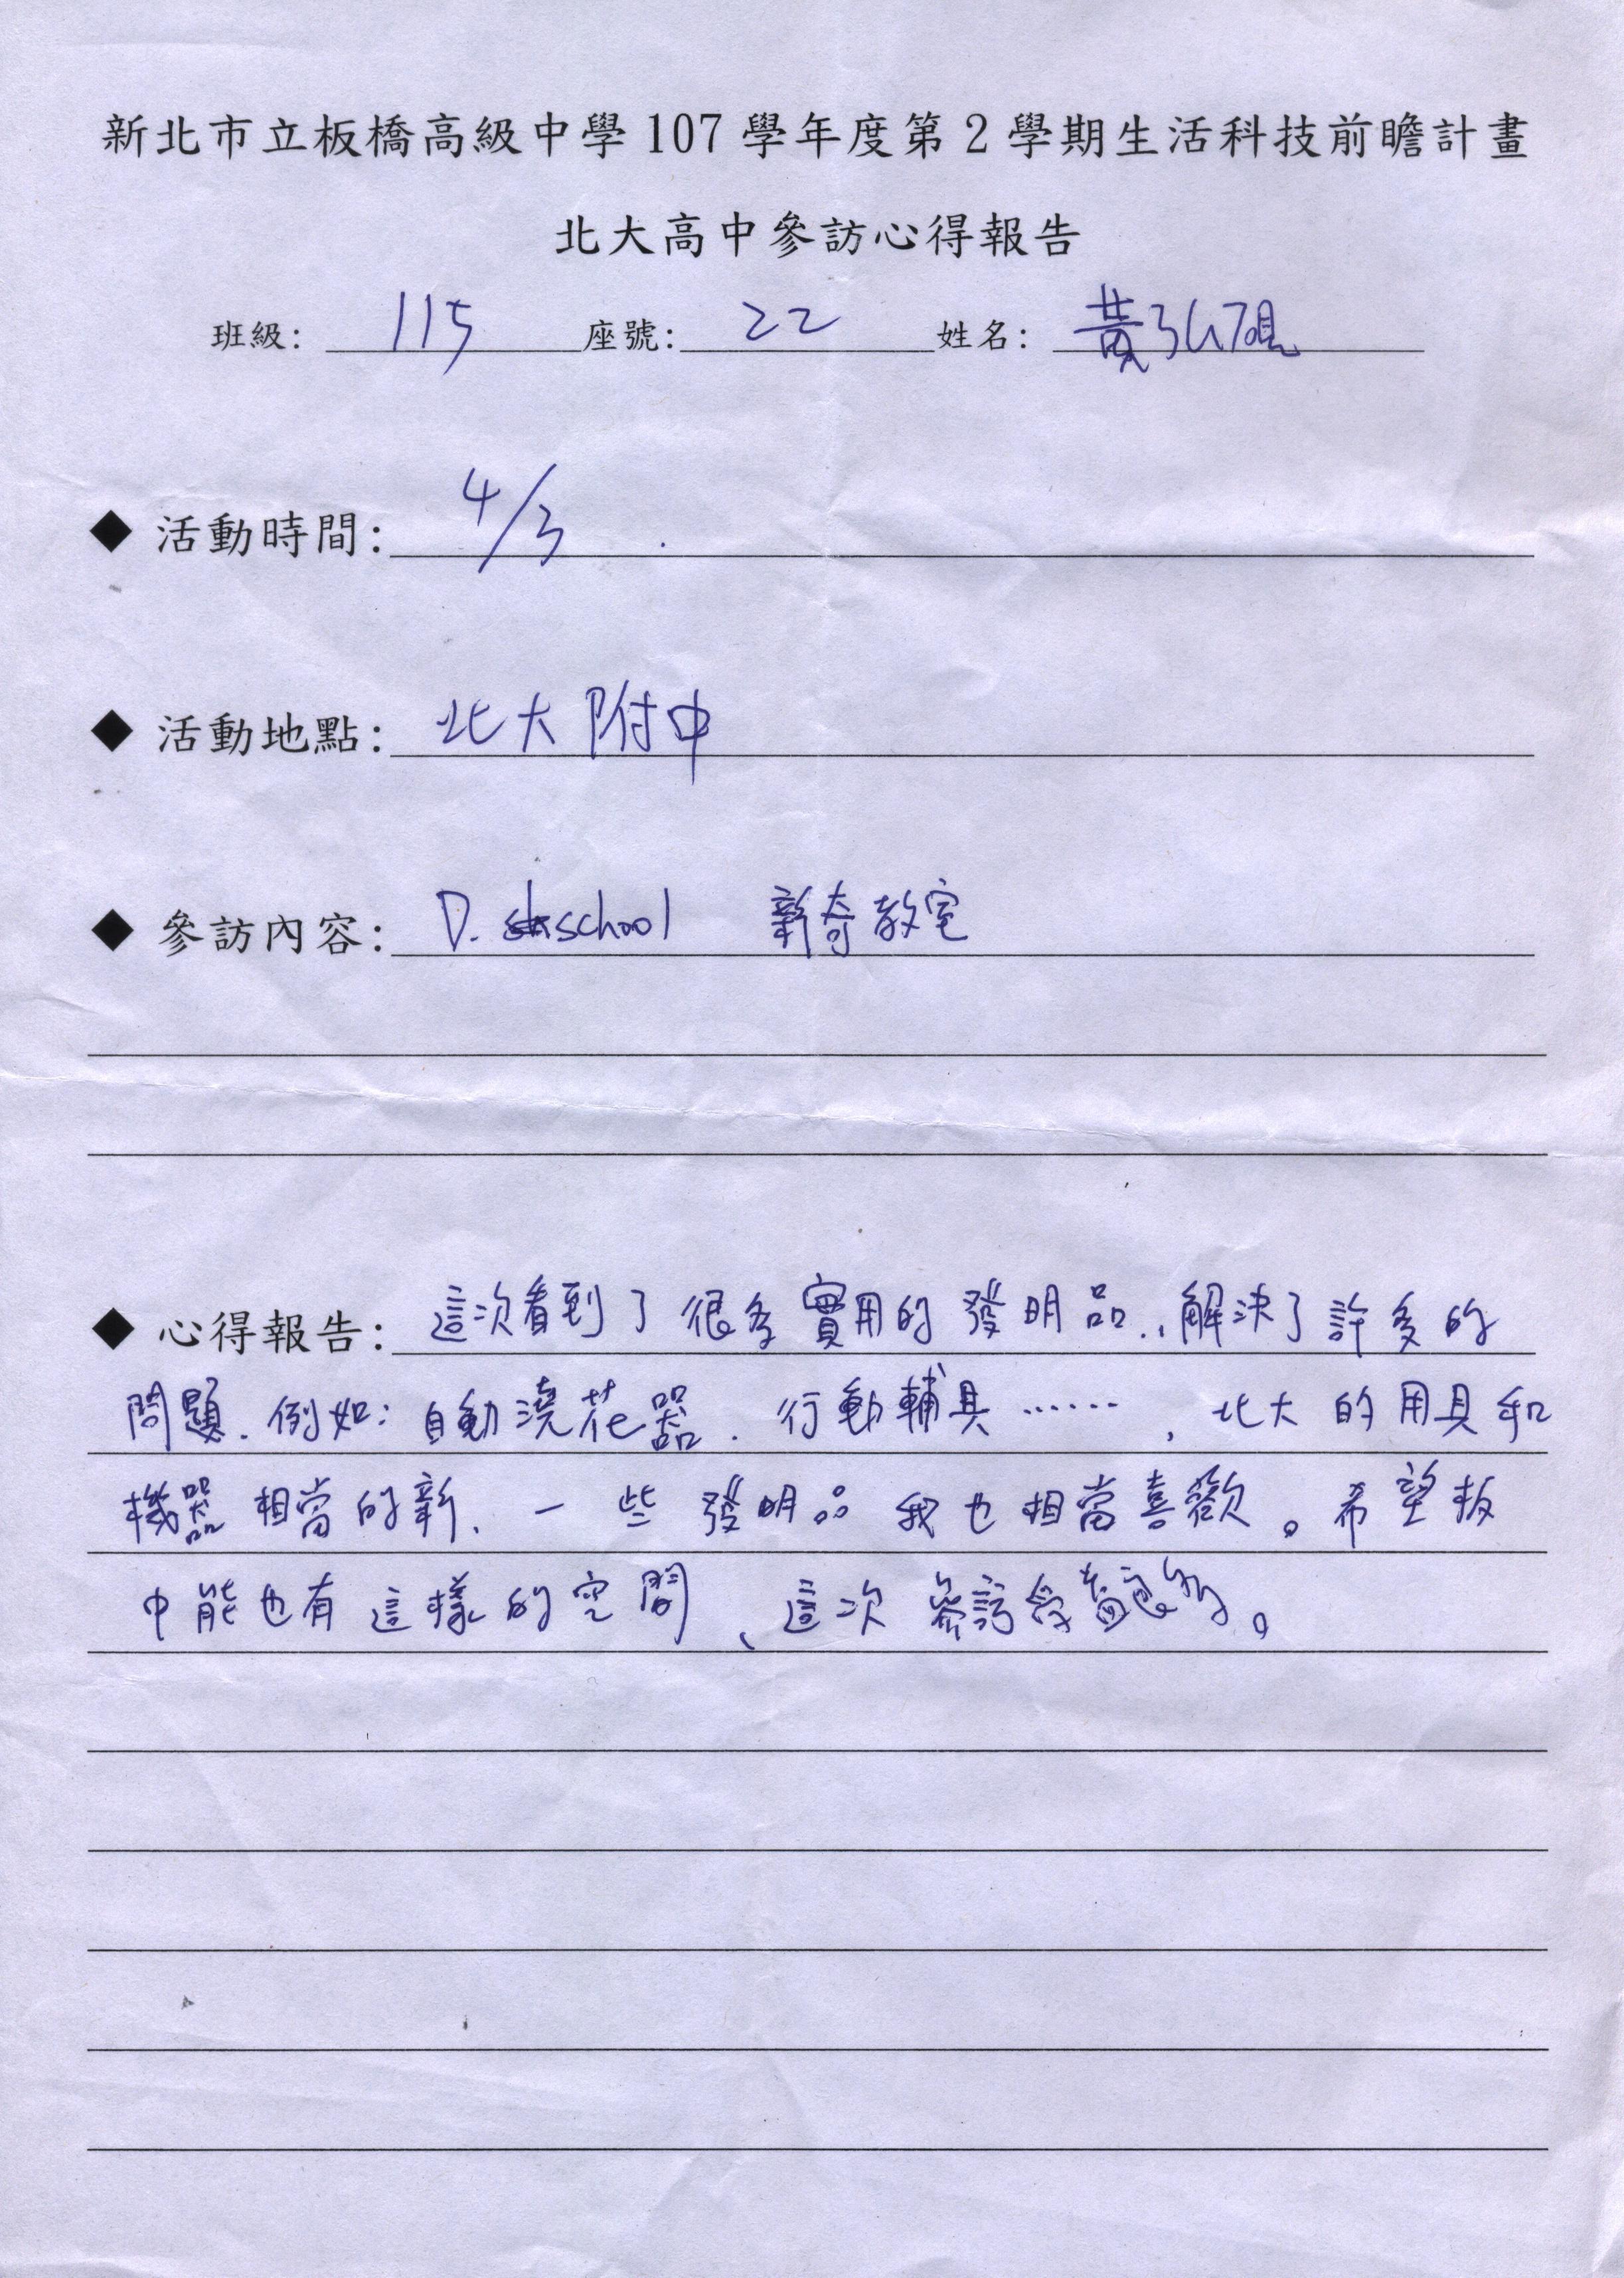 新北市立板橋高級中學107學年度第2學期生活科技前瞻計畫
北大高中參訪心得報告
班級: 115 座號: 22 姓名: 黃弘硯
◆ 活動時間: 4/3
◆ 活動地點: 北大附中
◆ 參訪內容: D. school 新奇教室
◆ 心得報告: 這次看到了很多實用的發明品、解決了許多的
問題、例如:自動澆花器、行動輔具……,北大的用具和
機器相當的新、一些發明品我也相當喜歡。希望板
中能也有這樣的空間、這次參訪受益良多。